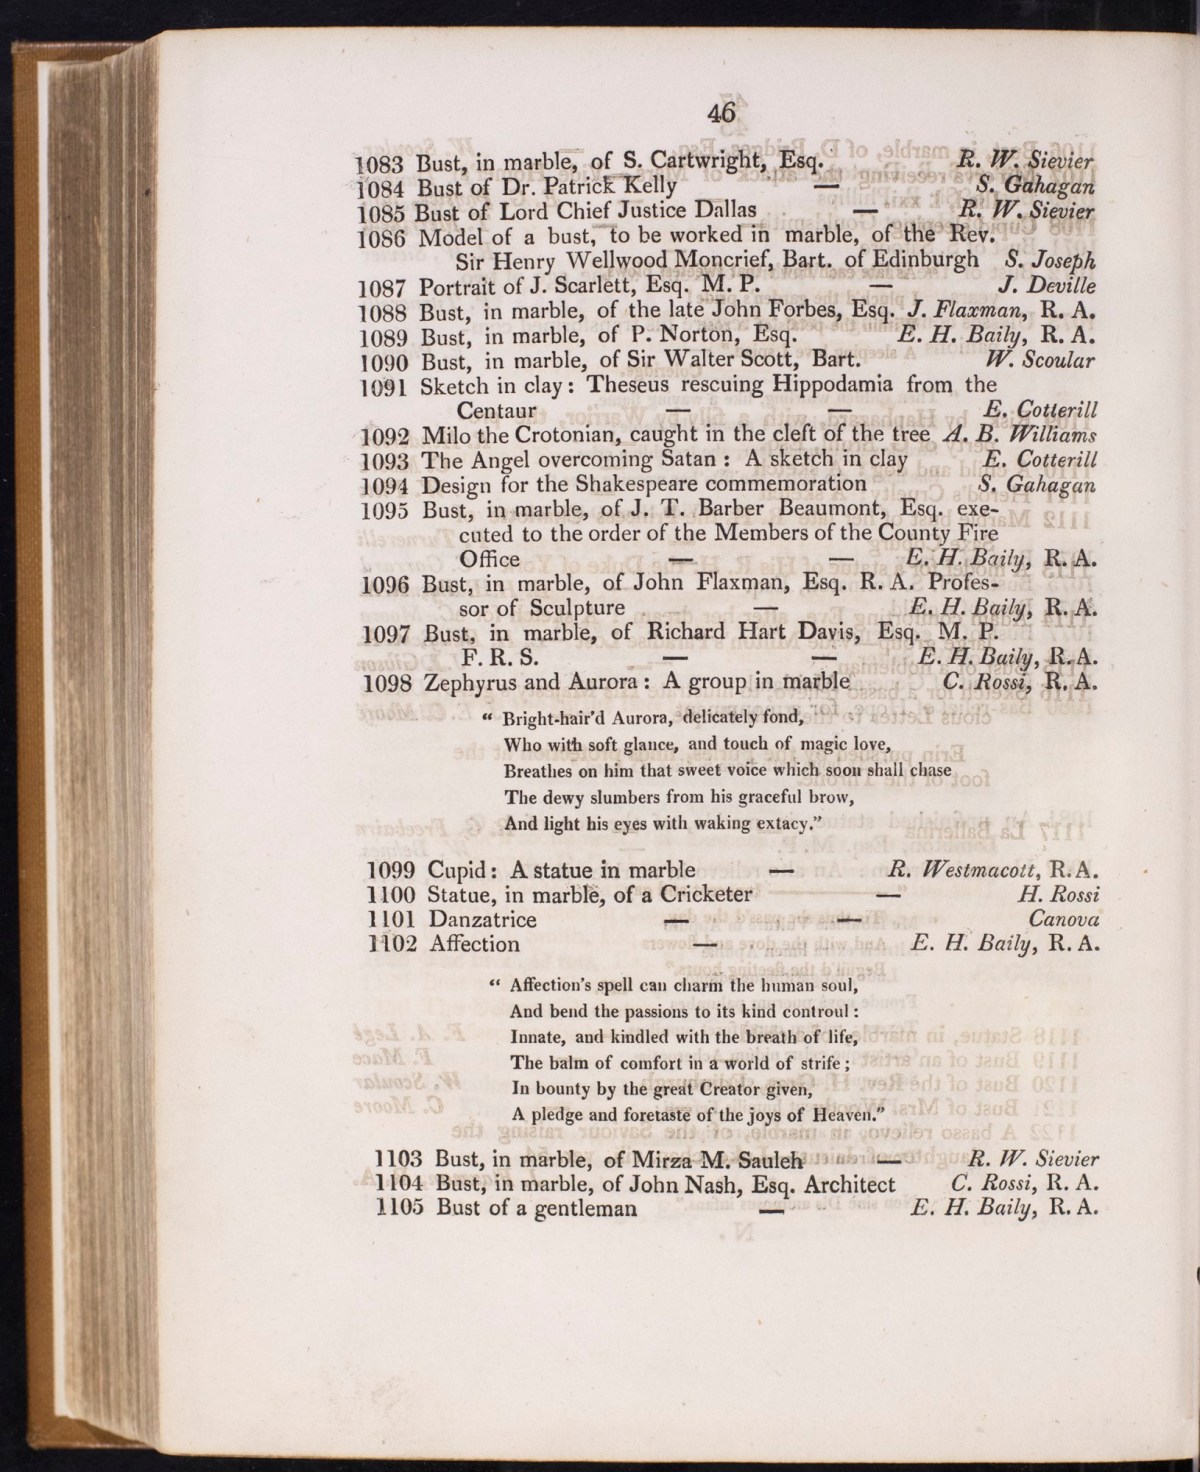 46
1083 Bust, in marble, of S. Cartwright, Esq. R. W. Sievier
1084 Bust of Dr. Patrick Kelly — S. Gahagan
1085 Bust of Lord Chief Justice Dallas — R. W. Sievier
1086 Model of a bust, to be worked in marble, of the Rev.
Sir Henry Wellwood Moncrief, Bart. of Edinburgh S. Joseph
1087 Portrait of J. Scarlett, Esq. M. P. — J. Deville
1088 Bust, in marble, of the late John Forbes, Esq. J. Flaxman, R. A.
1089 Bust, in marble, of P. Norton, Esq. E. H. Baily, R. A.
1090 Bust, in marble, of Sir Walter Scott, Bart. W. Scoular
1091 Sketch in clay: Theseus rescuing Hippodamia from the
Centaur — — E. Cotterill
1092 Milo the Crotonian, caught in the cleft of the tree A. B. Williams
1093 The Angel overcoming Satan: A sketch in clay E. Cotterill
1094 Design for the Shakespeare commemoration S. Gahagan
1095 Bust, in marble, of J. T. Barber Beaumont, Esq. exe-
cuted to the order of the Members of the County Fire
Office — — E. H. Baily, R. A.
1096 Bust, in marble, of John Flaxman, Esq. R. A. Profes-
sor of Sculpture — E. H. Baily, R. A.
1097 Bust, in marble, of Richard Hart Davis, Esq. M. P.
F. R. S. — — E. H. Baily, R. A.
1098 Zephyrus and Aurora: A group in marble C. Rossi, R. A.
“ Bright-hair'd Aurora, delicately fond,
Who with soft glance, and touch of magic love,
Breathes on him that sweet voice which soon shall chase
The dewy slumbers from his graceful brow,
And light his eyes with waking extacy.”
1099 Cupid: A statue in marble — R. Westmacott, R. A.
1100 Statue, in marble, of a Cricketer — H. Rossi
1101 Danzatrice — — Canova
1102 Affection — E. H. Baily, R. A.
“ Affection's spell can charm the human soul,
And bend the passions to its kind controul:
Innate, and kindled with the breath of life,
The balm of comfort in a world of strife;
In bounty by the great Creator given,
A pledge and foretaste of the joys of Heaven.”
1103 Bust, in marble, of Mirza M. Sauleh — R. W. Sievier
1104 Bust, in marble, of John Nash, Esq. Architect C. Rossi, R. A.
1105 Bust of a gentleman — E. H. Baily, R. A.